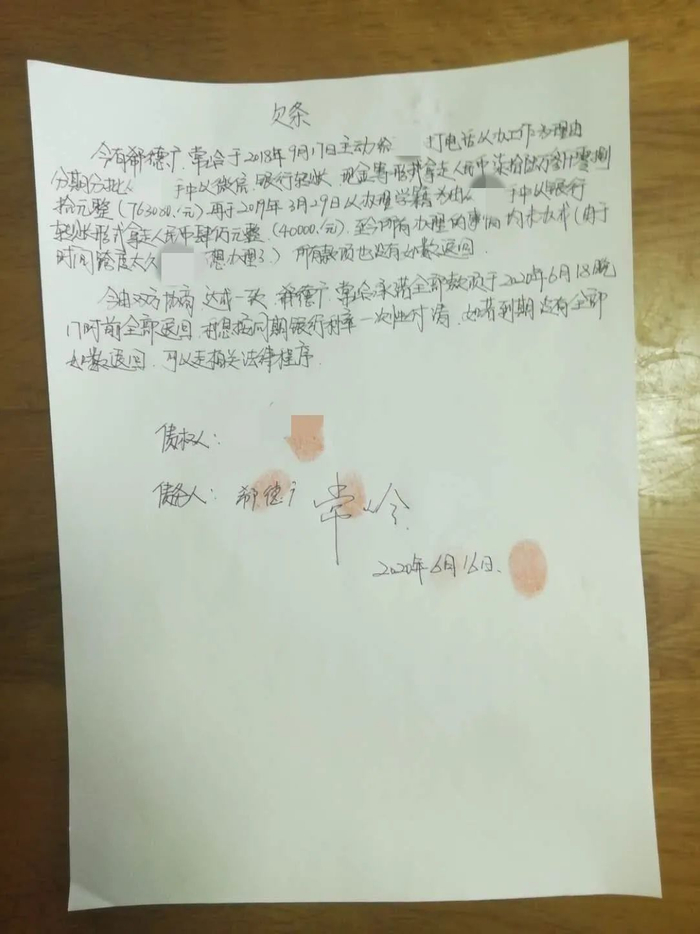 欠条
今有郗德广.常于2018年9月17日主动给 打电话以办工作为理由
分期分批从 手中以微信.银行转账.现金等形式拿走人民币柒拾陆万叁仟零捌
拾元整(763080/元).再于2019年3月29日以办理学籍为由从 手中以银行
转账形式拿走人民币肆万元整.(40000/元).至今所有办理的事情均未办成(由于
时间跨度太久 想办理了.)所有款项也没有如数退回.
今由双方协商.达成一致.郗德广.常承诺全部款项于2020年6月18晚
17时前全部退回.利息按同期银行利率一次性付清.如若到期没有全部
如数退回.可以走相关法律程序.
债权人:
债务人: 郗德广 常
2020年6月16日.